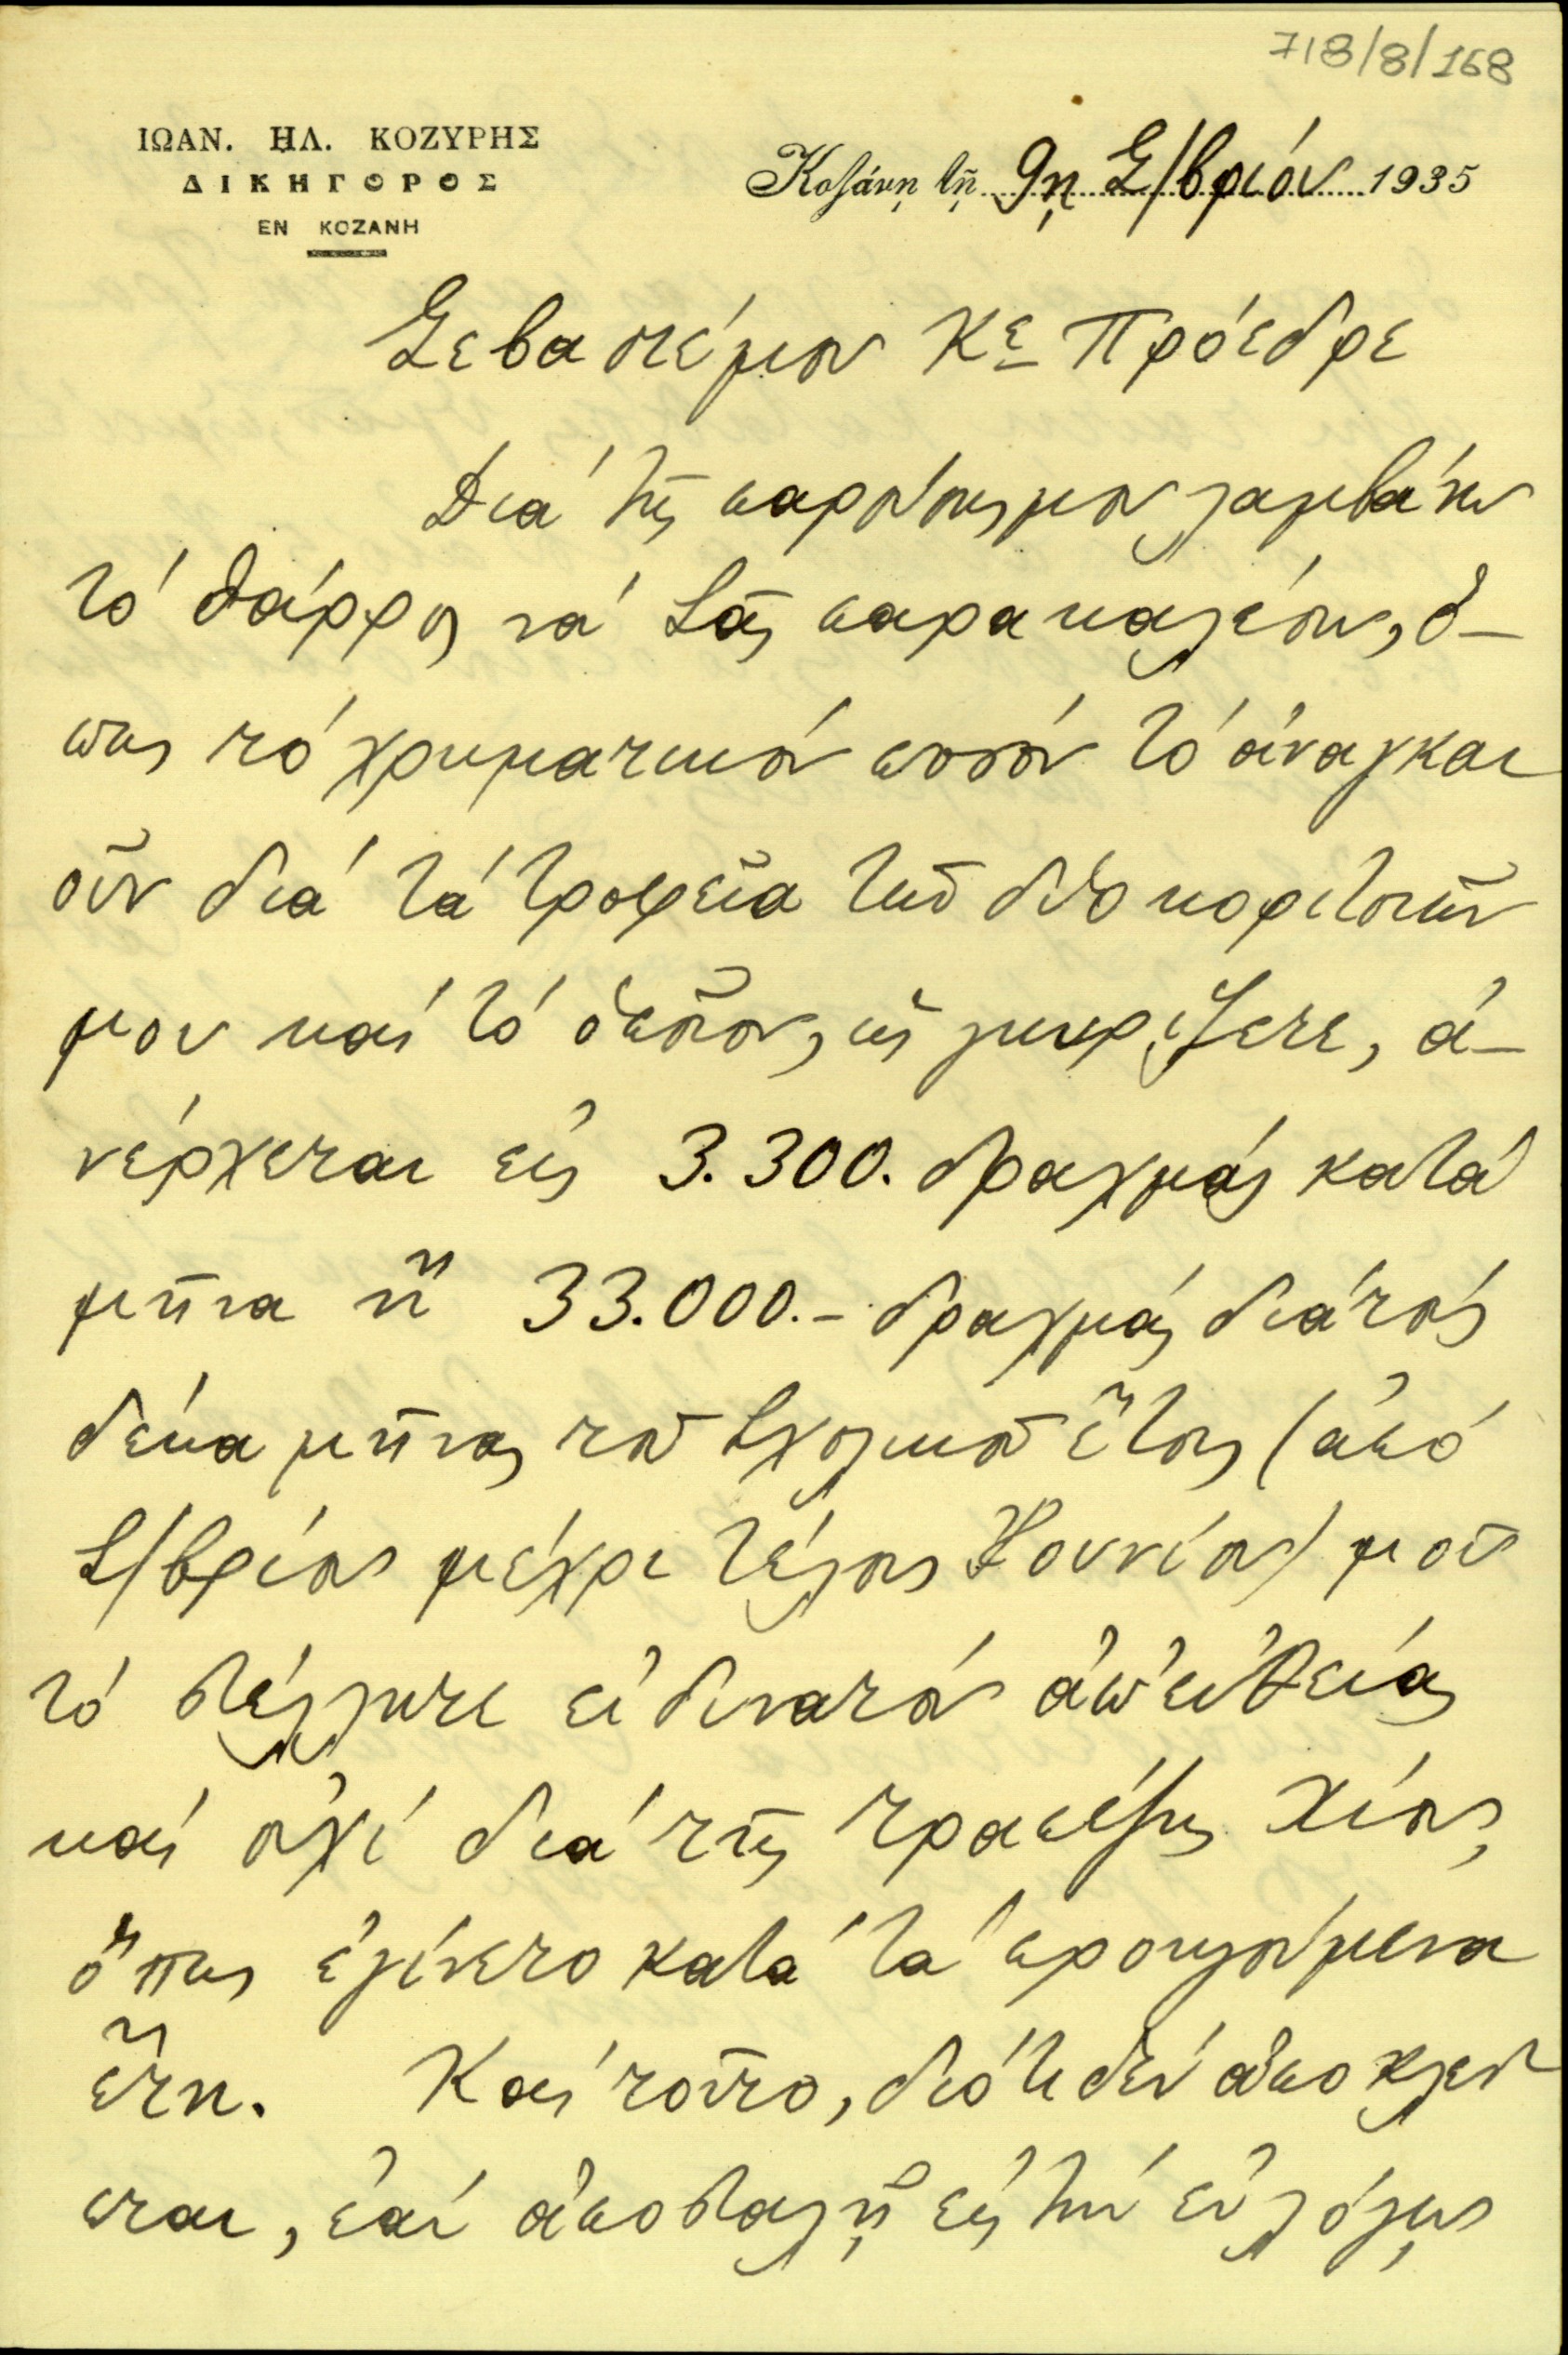 718/8/168
ΙΩΑΝ. ΗΛ. ΚΟΖΥΡΗΣ
ΔΙΚΗΓΟΡΟΣ
ΕΝ ΚΟΖΑΝΗ
Κοζάνη τῇ 9ῃ Σ/βρίου 1935
Σεβαστέ μου Κε Πρόεδρε
Διά τῆς παρούσης μου λαμβάνω
τό θάρρος νά Σᾶς παρακαλέσω, ὅ-
πως τό χρηματικόν ποσόν τό ἀναγκαι
οῦν διά τά τροφεῖα τῶν δύο κοριτσιῶν
μου καί τό ὁποῖον, ὡς γνωρίζετε, ἀ-
νέρχεται εἰς 3.300. δραχμάς κατά
μῆνα ἤ 33.000.- δραχμάς διά τούς
δέκα μῆνας τοῦ σχολικοῦ ἔτους (ἀπό
Σ/βρίου μέχρι τέλους Ἰουνίου) μοῦ
τό στέλλητε εἰ δυνατόν ἀπ' εὐθείας
καί οὐχί διά τῆς τραπέζης Χίου,
ὅπως ἐγίνετο κατά τά προηγούμενα
ἔτη. Καί τοῦτο, διότι δέν ἀποκλεί
εται, ἐάν ἀποσταλῇ εἰς τήν ἐν λόγῳ